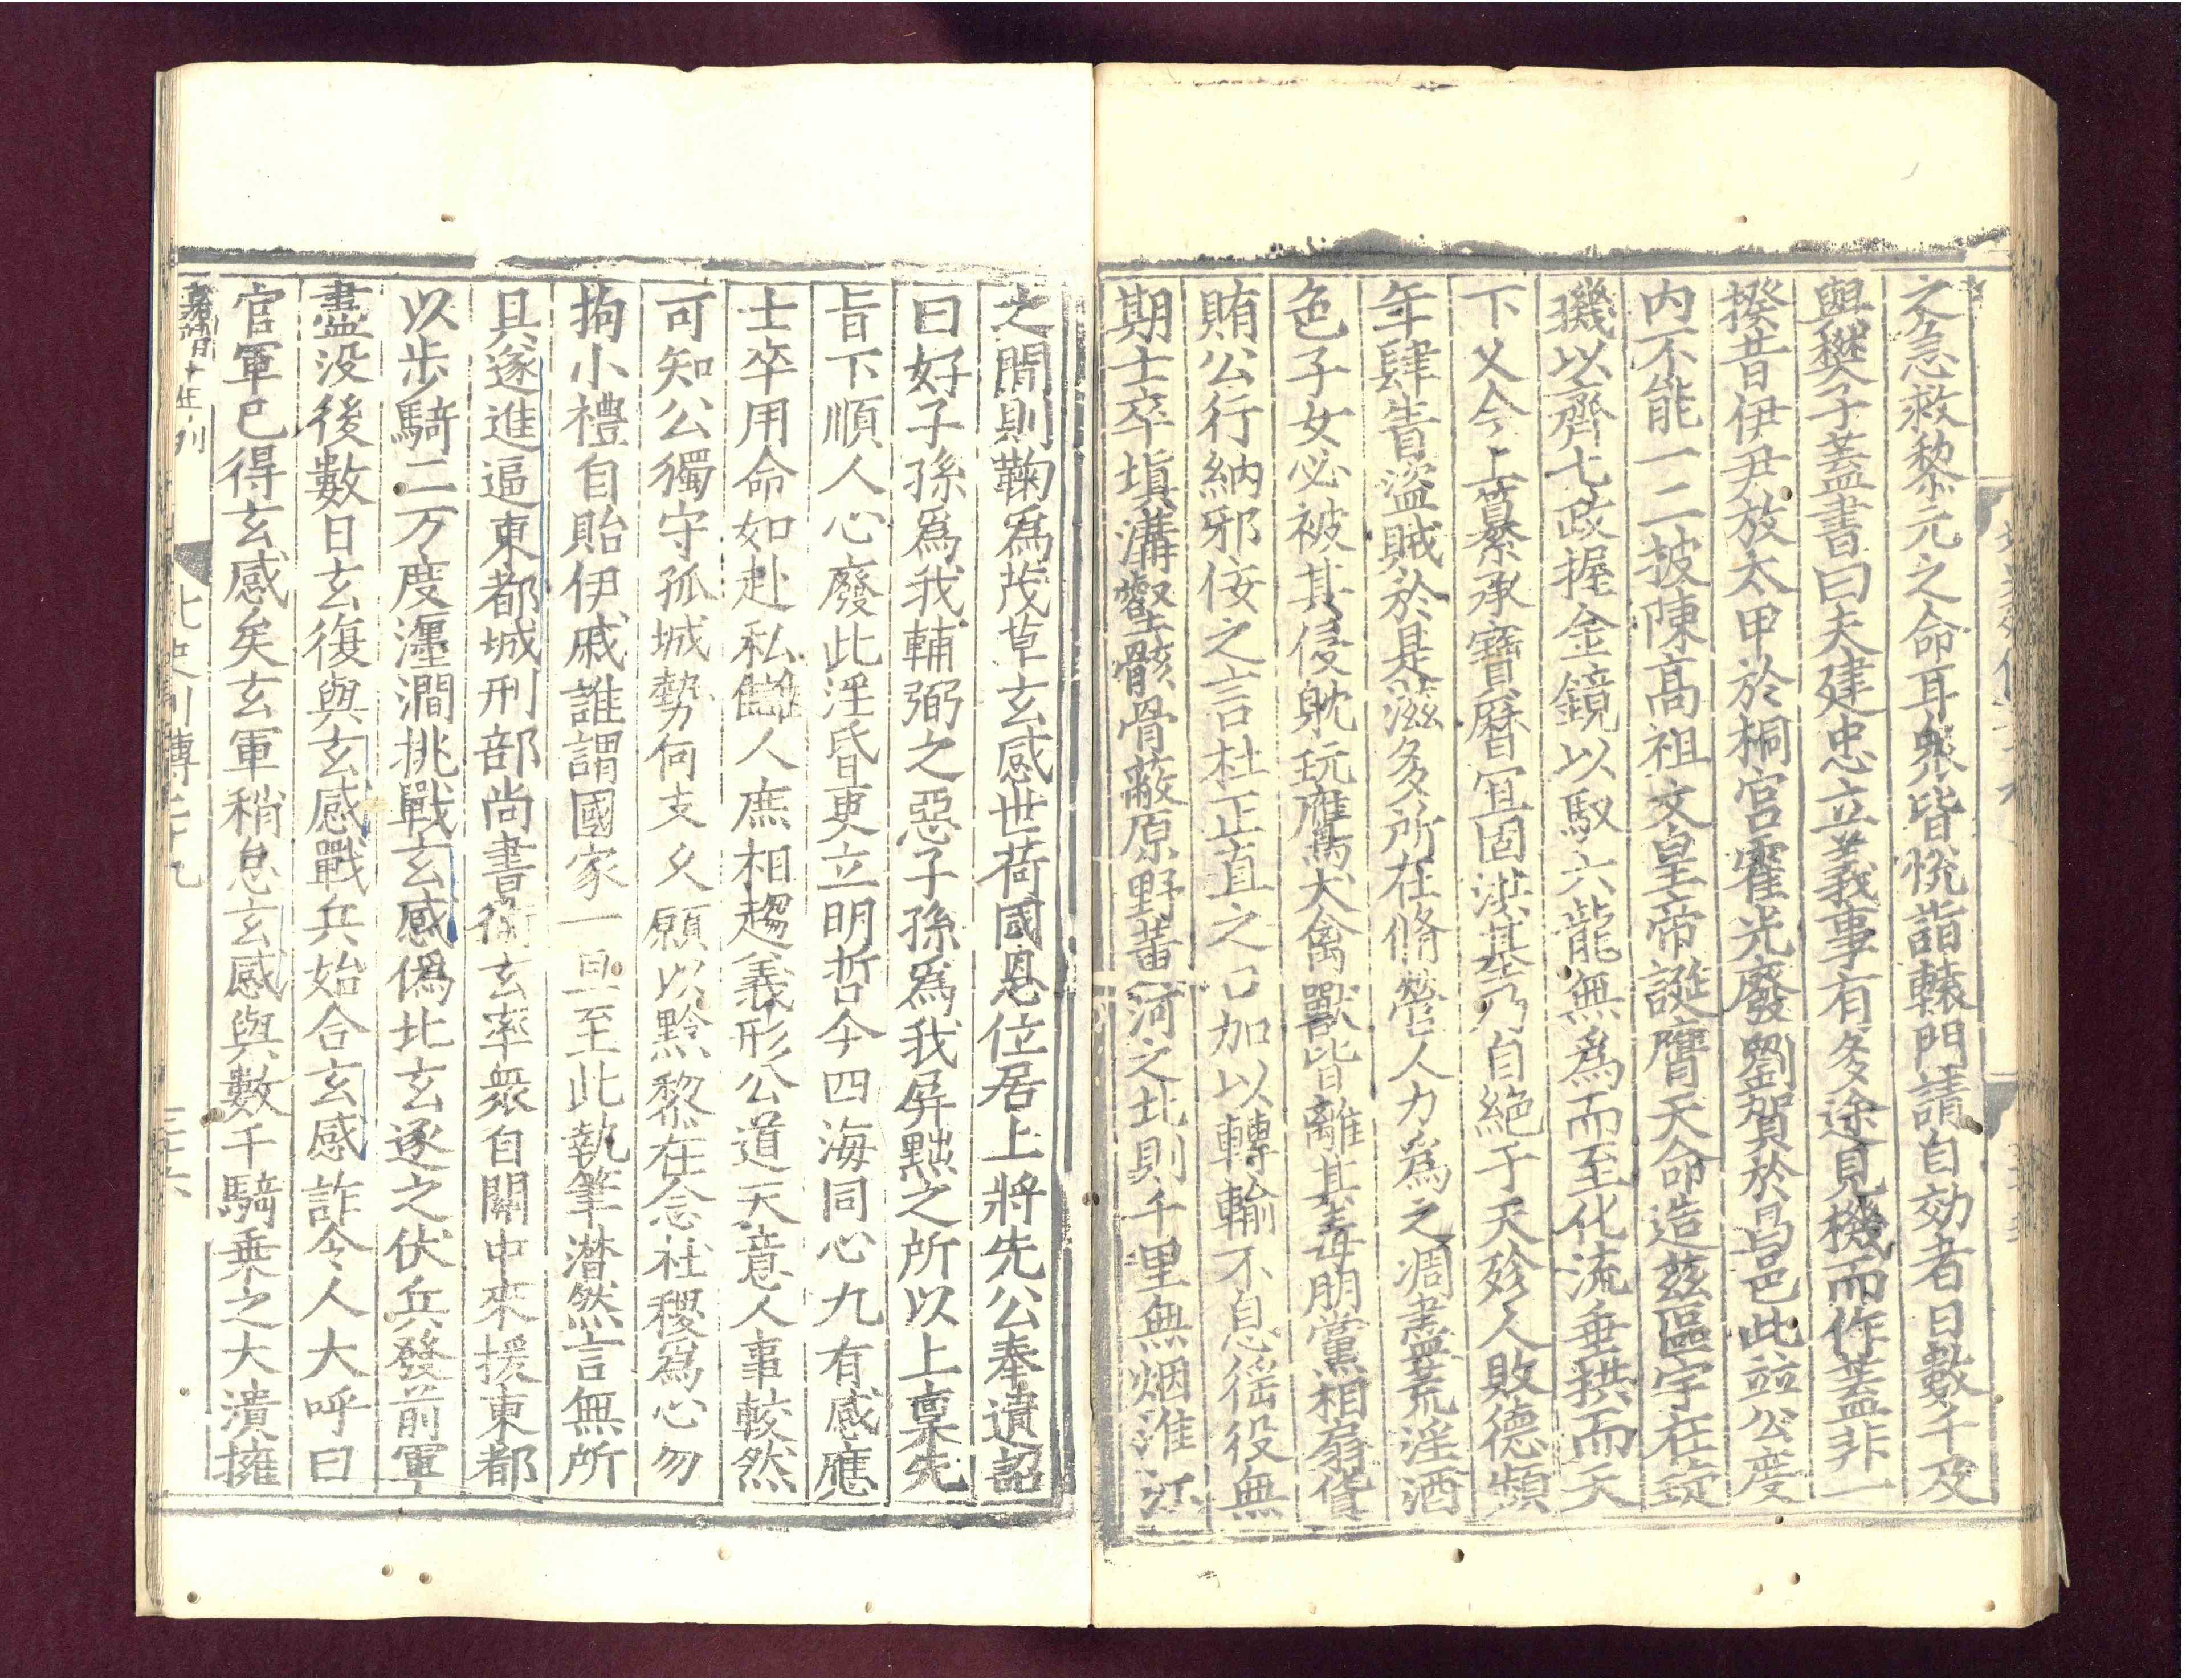 之急救黎元之命耳衆皆悅詣轅門請自効者日數千及
與樊子蓋書曰夫建忠立義事有多途見機而作蓋非一
揆昔伊尹放太甲於桐宮霍光廢劉賀於昌邑此並公度
内不能一二披陳高祖文皇帝誕膺天命造茲區宇在琁
璣以齊七政握金鏡以馭六龍無爲而至化流垂拱而天
下乂今上纂承寶曆冝固洪基乃自絶于天殄人敗德頻
年肆眚盜賊於是滋多所在脩營人力爲之凋盡荒淫酒
色子女必被其侵躭玩鷹犬禽獸皆離其毒朋黨相扇貨
賄公行納邪佞之言杜正直之口加以轉輸不息徭役無
期士卒塡溝壑骸骨蔽原野黃河之北則千里無烟淮江
之間則鞠爲茂草玄感世荷國恩位居上將先公奉遺詔
曰好子孫爲我輔弼之惡子孫爲我屏黜之所以上稟先
旨下順人心廢此淫昏更立明哲今四海同心九有感應
士卒用命如赴私讎人庶相趨義形公道天意人事較然
可知公獨守孤城勢何支久願以黔黎在念社稷爲心勿
拘小禮自貽伊戚誰謂國家一旦至此執筆潸然言無所
具遂進逼東都城刑部尚書衛玄率衆自關中來援東都
以步騎二万度瀍澗挑戰玄感僞北玄逐之伏兵發前軍
盡没後數日玄復與玄感戰兵始合玄感詐令人大呼曰
官軍已得玄感矣玄軍稍怠玄感與數千騎乗之大潰擁
北史列傳二十九